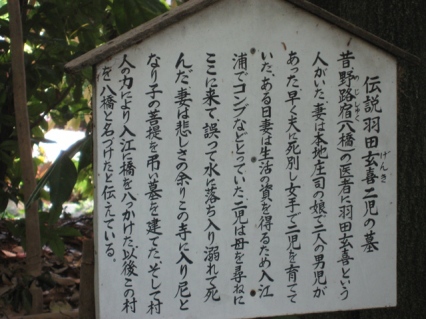 伝説 羽田玄喜二児の墓
げんき
昔、野路宿(八橋)の医者に羽田玄喜という
のじしゅく
人がいた。妻は本地庄司の娘で二人の男児が
あった。早く夫に死別し女手で二児を育てて
いた。ある日妻は生活の資を得るため入江
浦でコンブなどとっていた。二児は母を尋ねに
ここに来て、誤って水に落ち入り溺れて死
んだ。妻は悲しさの余りこの寺に入り尼と
なり子の菩提を弔い墓を建てた。そして村
人の力により入江に橋を八つかけた。以後この村
を八橋と名づけたと伝えている。